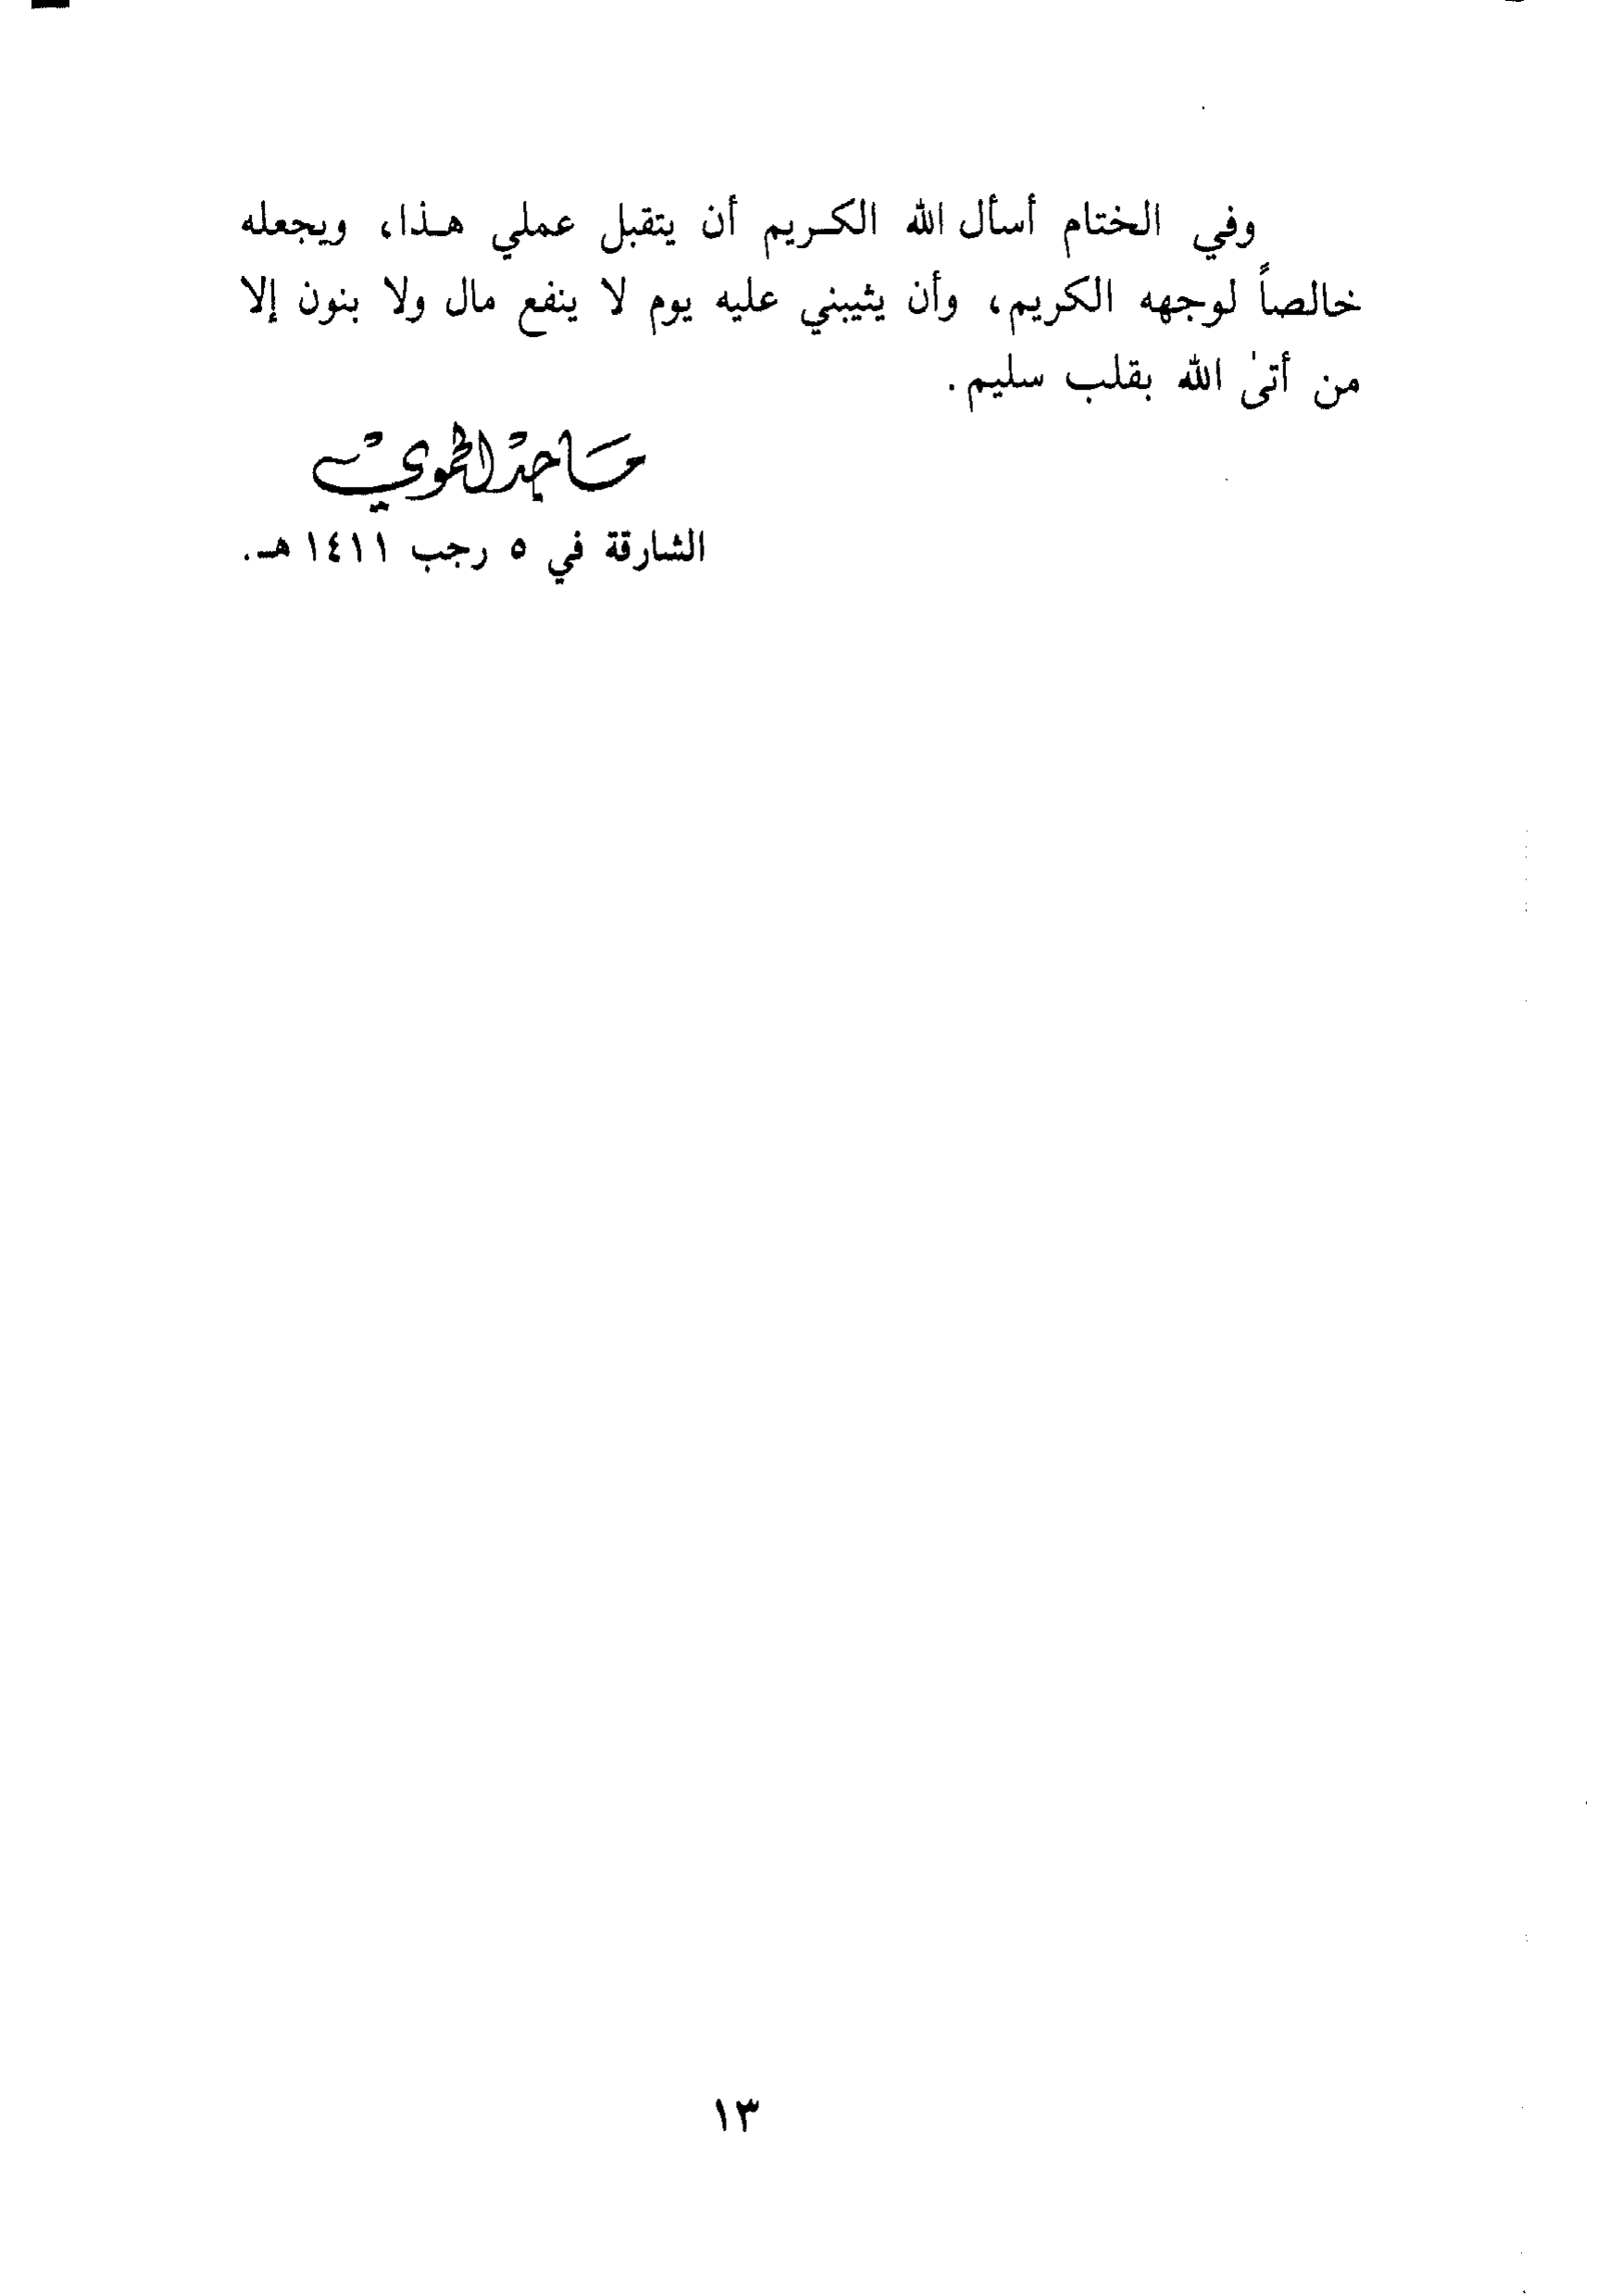 وفي الختام أسأل الله الكريم أن يتقبل عملي هذا، ويجعله
خالصاً لوجهه الكريم، وأن يثيبني عليه يوم لا ينفع مال ولا بنون إلا
من أتىٰ الله بقلب سليم.
ماجد الحموي
الشارقة في ٥ رجب ١٤١١ هـ.
١٣